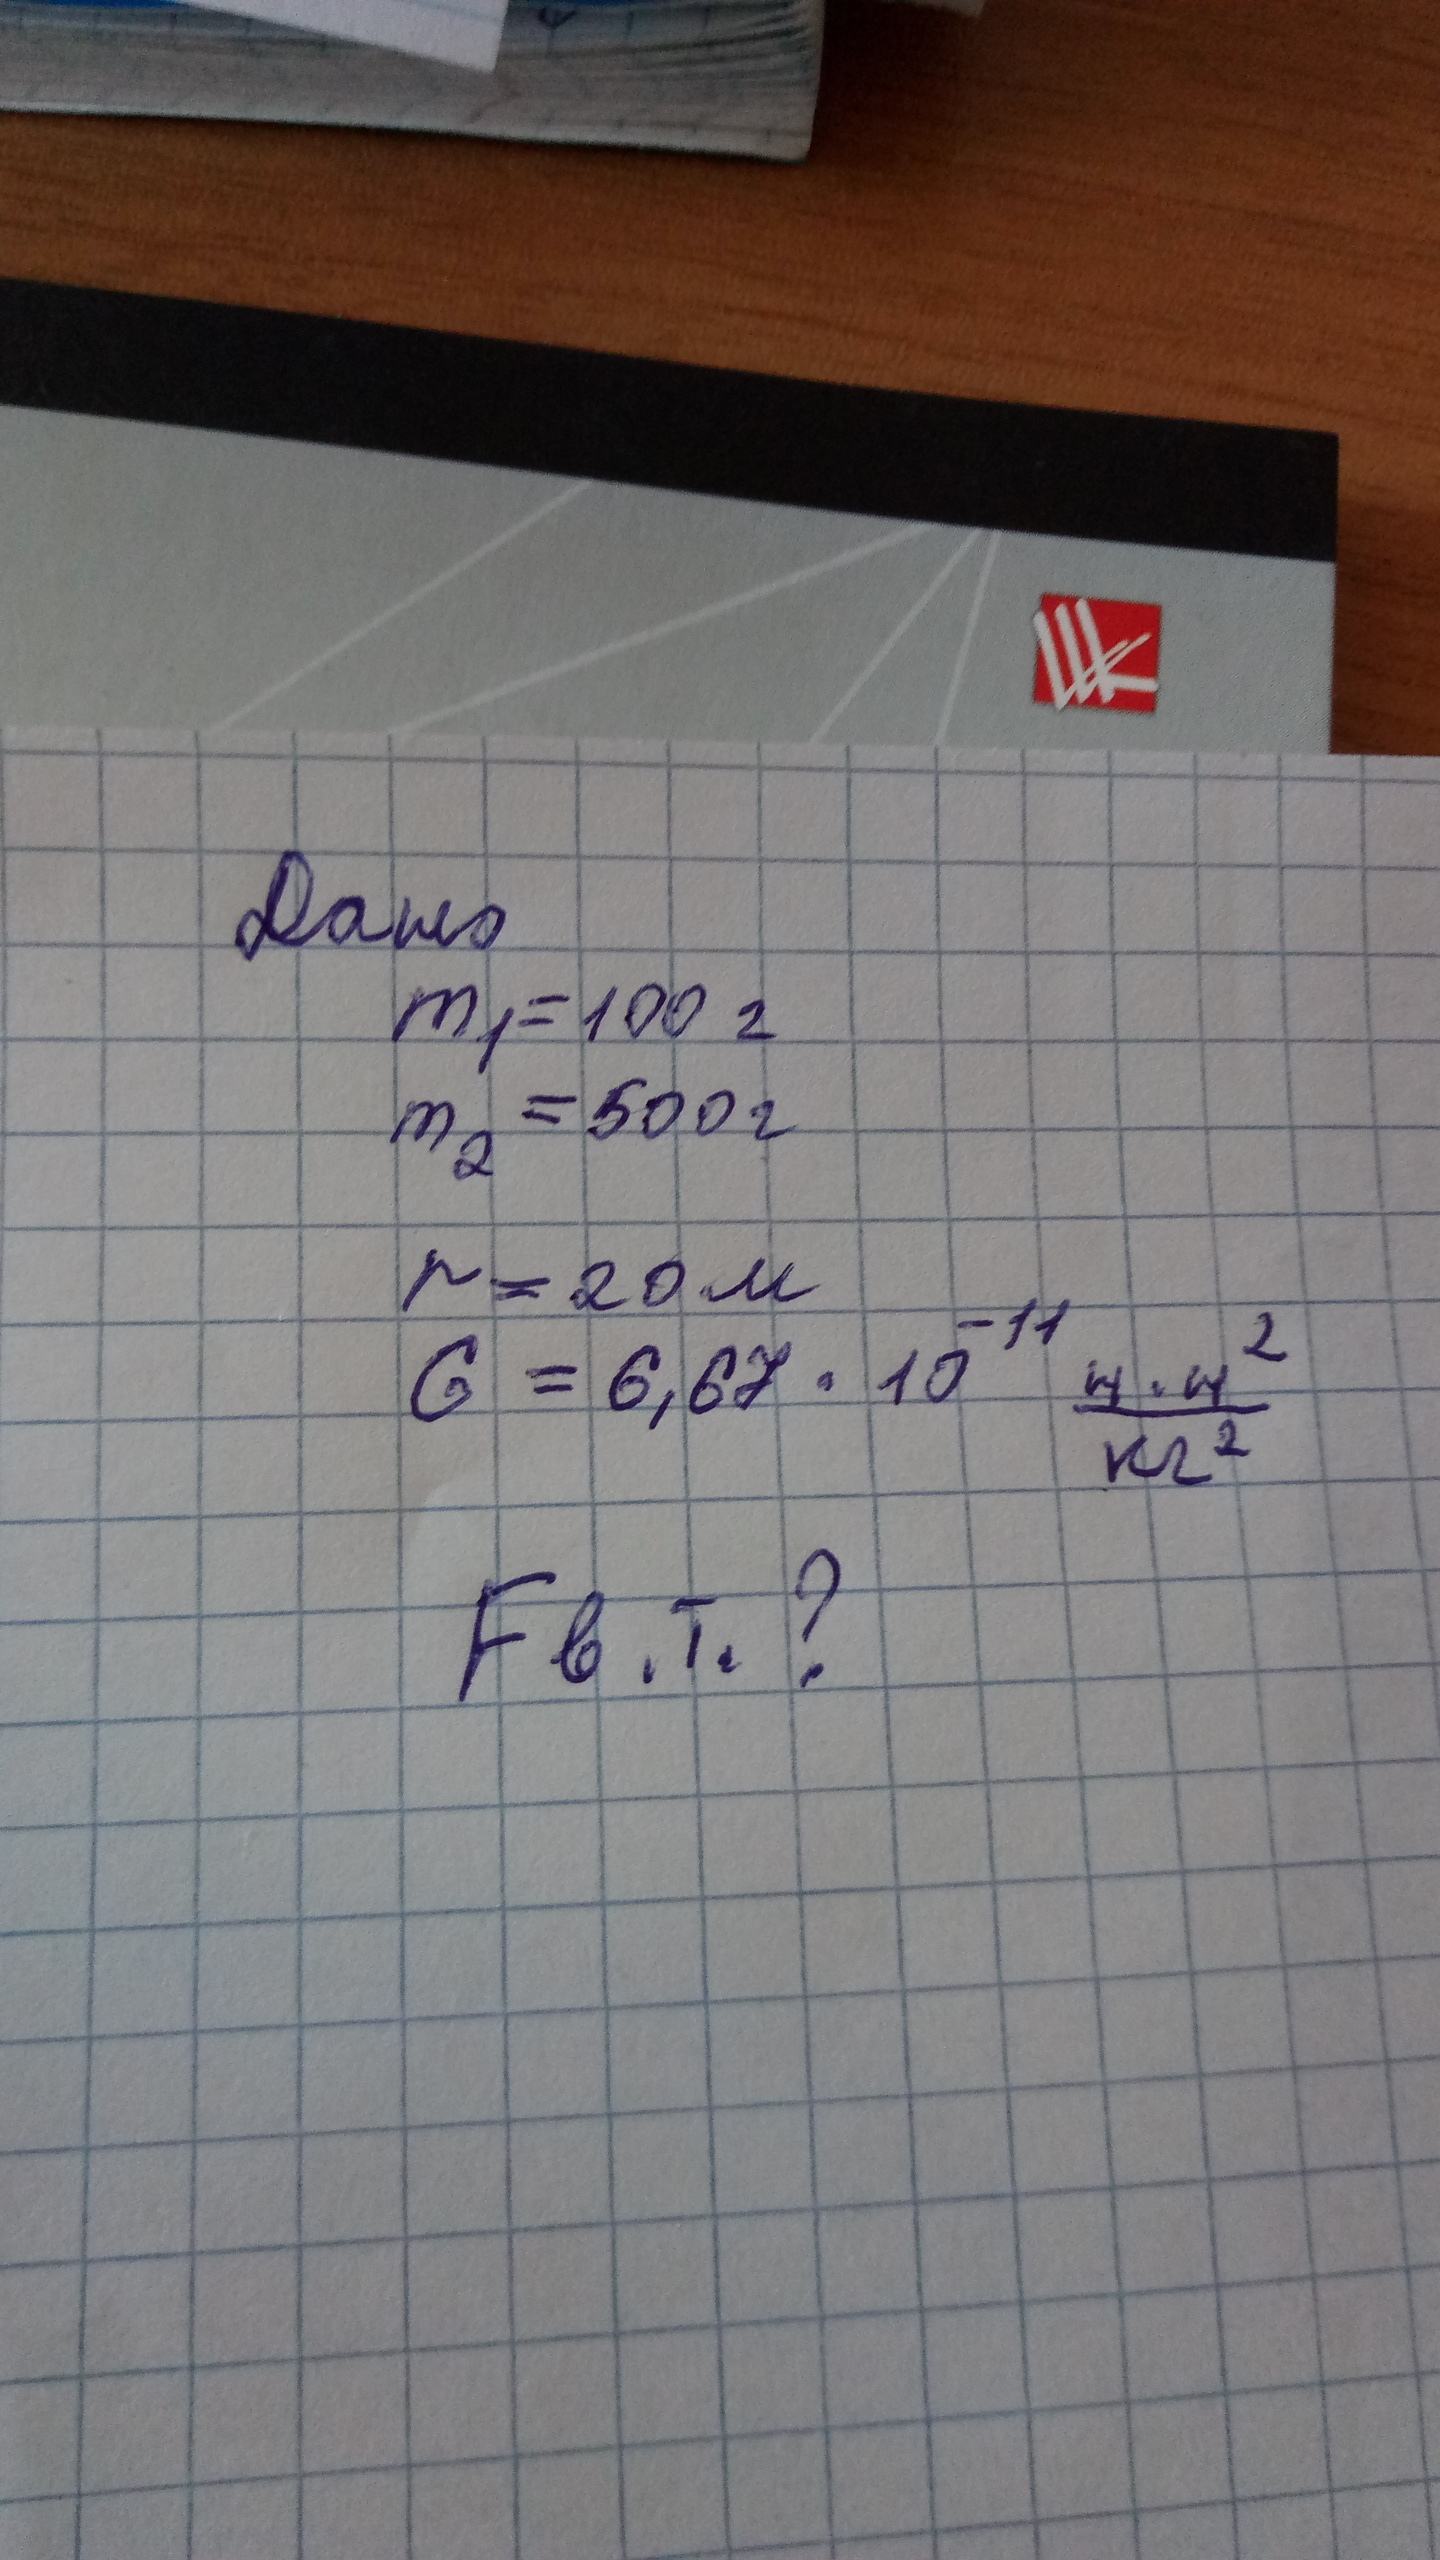 Дано
m₁ = 100 г
m₂ = 500 г
r = 20 м
G = 6,67 · 10⁻¹¹ н·н²/кг²
F в.т. ?